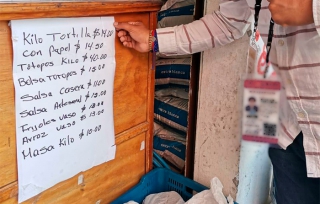 Kilo Tortilla $14.00
con Papel $14.50
Totopos Kilo $40.00
Bolsa Totopos $15.00
Salsa Casera $11.00
Salsa Artesenal $
Frijoles vaso $
Arroz vaso $13.00
Masa Kilo $10.00